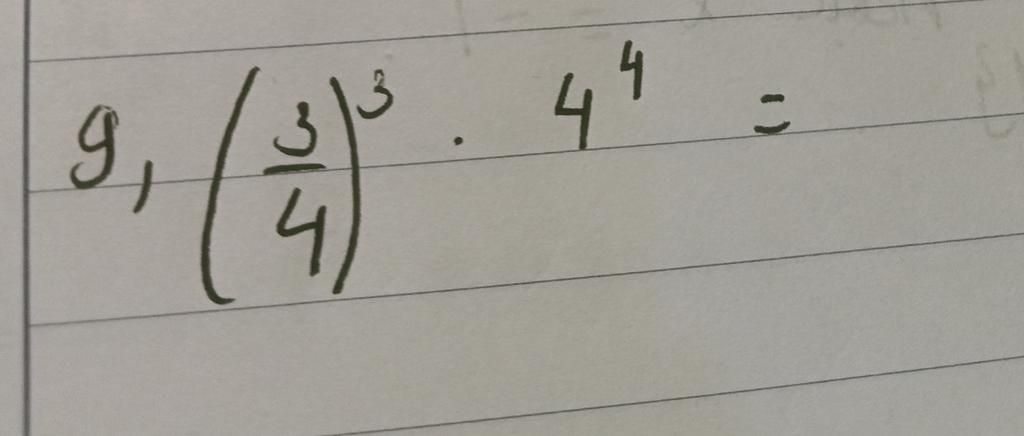 g, (3/4)³ · 4⁴ =